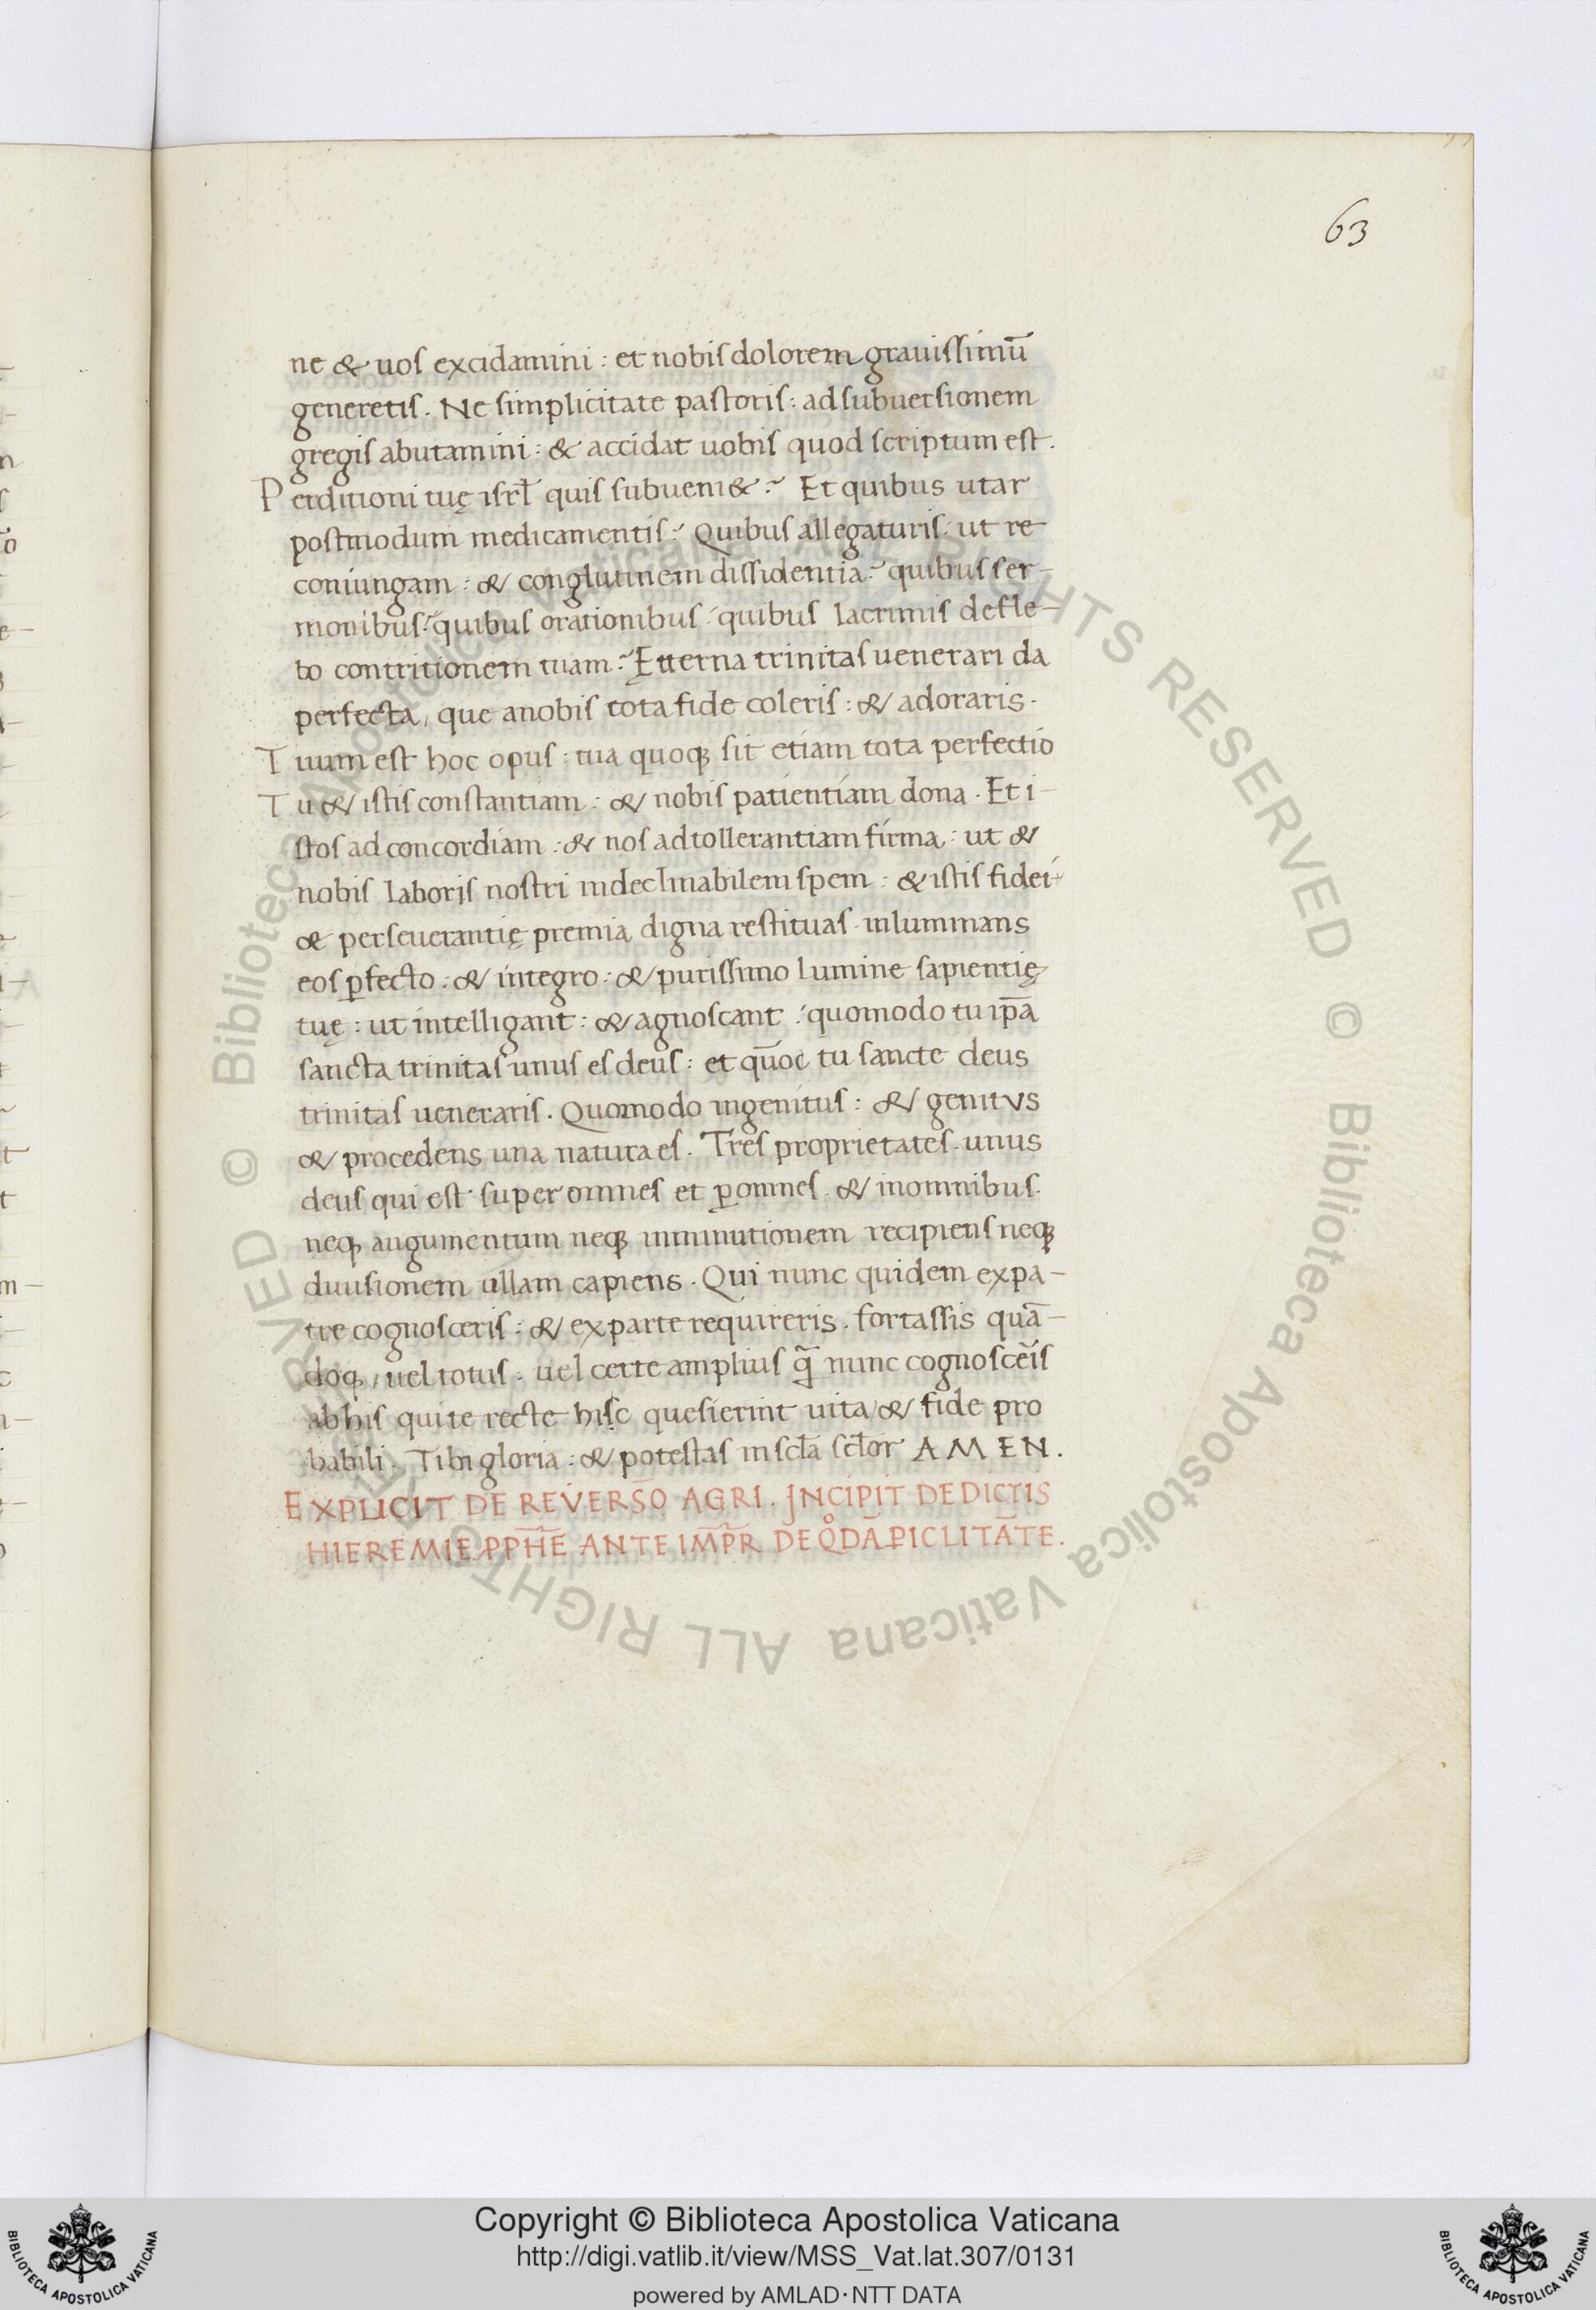 63
ne & uos excidamini : et nobis dolorem grauissimū
generetis . Ne simplicitate pastoris : ad subuersionem
gregis abutamini : & accidat uobis quod scriptum est .
Perditioni tuę isrł quis subueni& ? Et quibus utar
postmodum medicamentis ? Quibus allegaturis . ut re
coniungam : & conglutinem dissidentia ? quibus ser-
monibus ? quibus orationibus ? quibus lacrimis defle-
bo contritionem tuam ? Ęterna trinitas uenerari da
perfecta , que anobis tota fide coleris : & adoraris .
Tuum est hoc opus : tua quoq; sit etiam tota perfectio
Tu & istis constantiam : & nobis patientiam dona . Et i-
stos ad concordiam : & nos ad tollerantiam firma : ut &
nobis laboris nostri indeclinabilem spem : & istis fidei
& perseuerantię premia digna restituas . inluminans
eos ꝑfecto : & integro : & purissimo lumine sapientię
tuę : ut intelligant : & agnoscant : quomodo tu ip̄a
sancta trinitas unus es deus : et quōc tu sancte deus
trinitas ueneraris . Quomodo ingenitus : & genitus
& procedens una natura es . Tres proprietates . unus
deus qui est super omnes et ꝑ omnes . & in omnibus .
neq; augumentum neq; inminutionem recipiens neq;
diuisionem ullam capiens . Qui nunc quidem expa-
tre cognosceris : & ex parte requireris . fortassis quā-
doq; , uel totus : uel certe amplius q̄ nunc cognoscẽis
ab his qui te recte hisc quesierint uita & fide pro
babili . Tibi gloria : & potestas in scła scłor AMEN .
EXPLICIT DE REVERSO AGRI . INCIPIT DE DICTIS
HIEREMIE PPHĒ ANTE IMP̄R DE QͦDĀ ꝐICLITĀTE .
© Biblioteca Apostolica Vaticana ALL RIGHTS RESERVED © Biblioteca Apostolica Vaticana ALL RIGHTS RESERVED
Copyright © Biblioteca Apostolica Vaticana
http://digi.vatlib.it/view/MSS_Vat.lat.307/0131
powered by AMLAD·NTT DATA
BIBLIOTECA APOSTOLICA VATICANA
BIBLIOTECA APOSTOLICA VATICANA